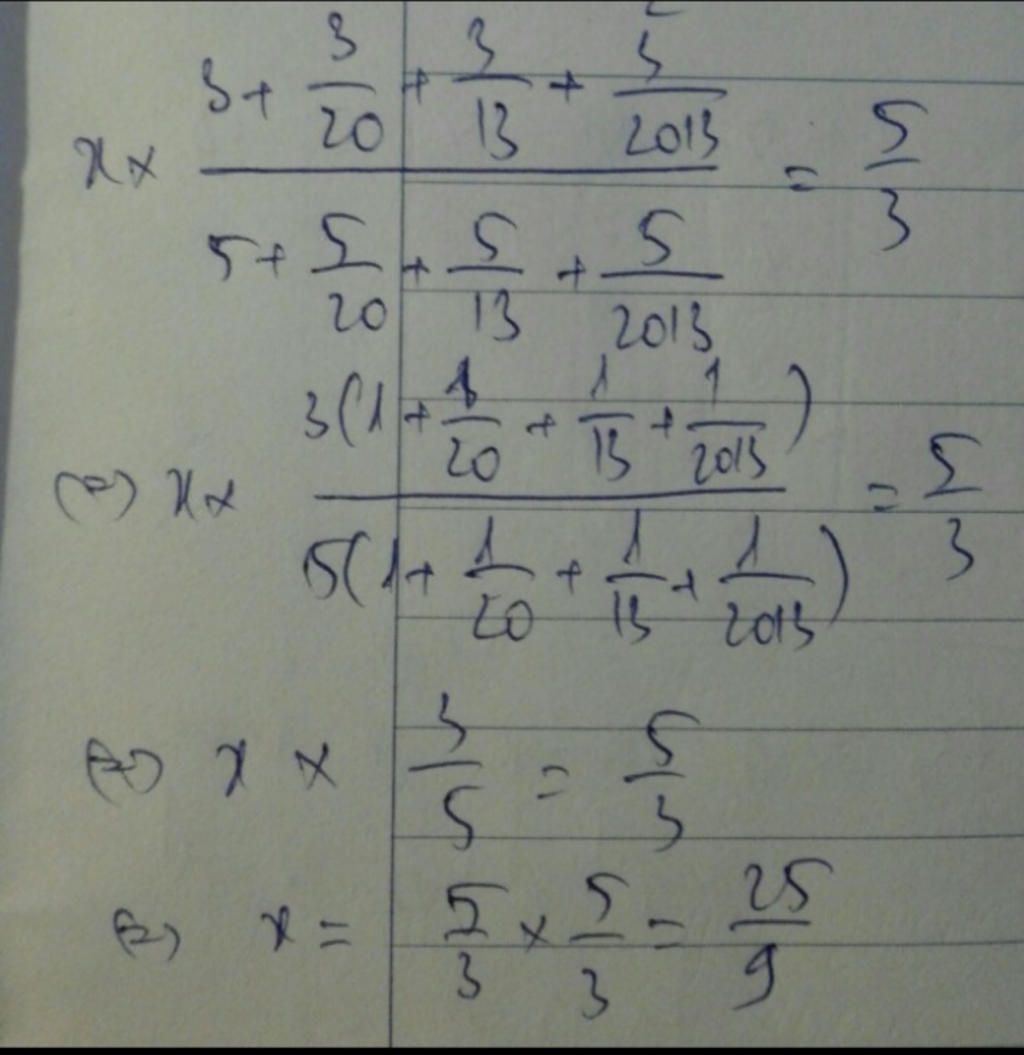 x × (3 + 3/20 + 3/13 + 3/2013) / (5 + 5/20 + 5/13 + 5/2013) = 5/3
(=) x × 3(1 + 1/20 + 1/13 + 1/2013) / 5(1 + 1/20 + 1/13 + 1/2013) = 5/3
(=) x × 3/5 = 5/3
(=) x = 5/3 × 5/3 = 25/9